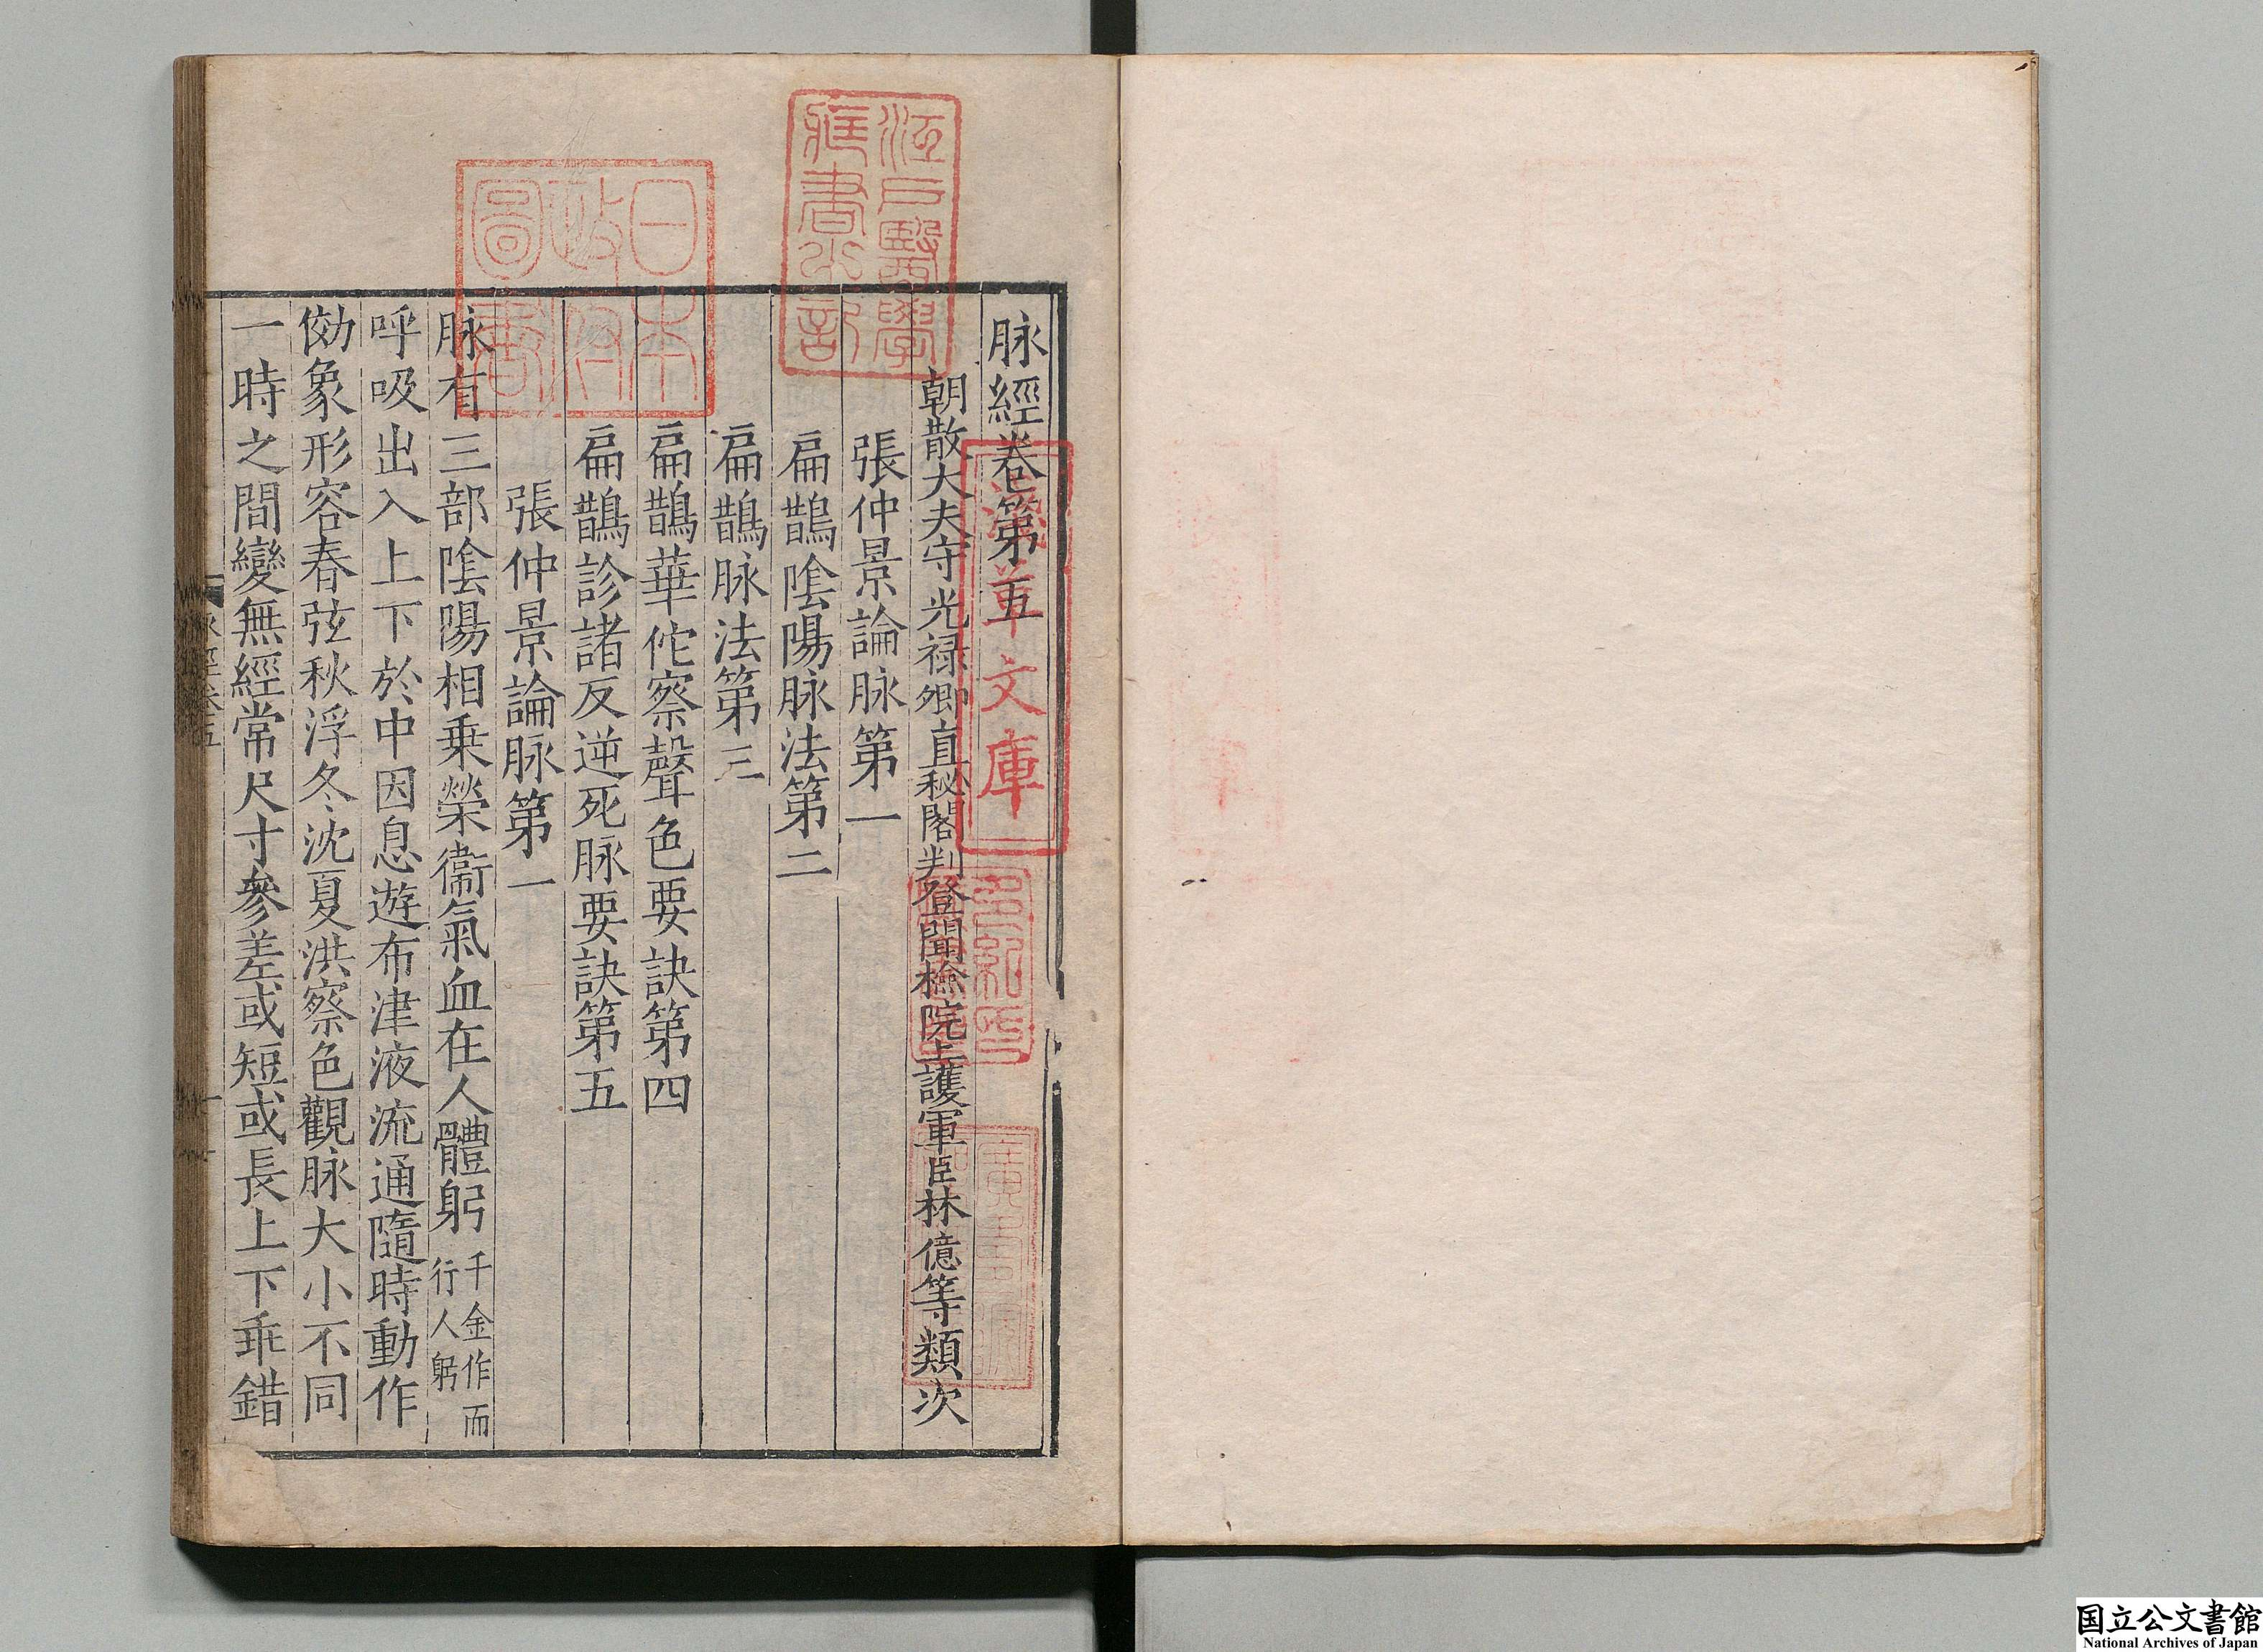 脉經卷第五
朝散大夫守光禄卿直秘閣判登聞檢院上護軍臣林億等類次
張仲景論脉第一
扁鵲隂陽脉法第二
扁鵲脉法第三
扁鵲華佗察聲色要訣第四
扁鵲診諸反逆死脉要訣第五
張仲景論脉第一
脉有三部隂陽相乗榮衞氣血在人體躬千金作而行人躬
呼吸出入上下於中因息遊布津液流通隨時動作
効象形容春弦秋浮冬沈夏洪察色觀脉大小不同
一時之間變無經常尺寸參差或短或長上下乖錯
脉經卷五
一
江戸醫學
藏書之記
日本
政府
圖書
躋壽
文庫
多紀氏
国立公文書館
National Archives of Japan